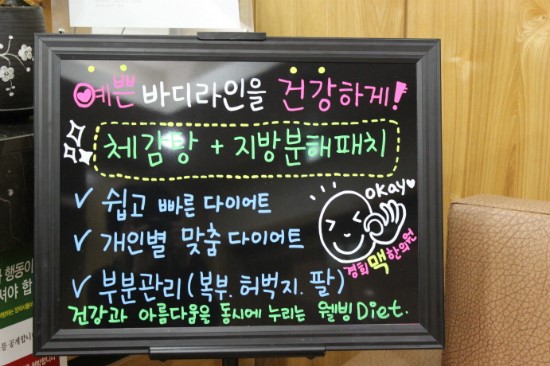 예쁜 바디라인을 건강하게!
체감탕 + 지방분해패치
✓ 쉽고 빠른 다이어트
✓ 개인별 맞춤 다이어트
OKay♥
경희맥한의원
✓ 부분관리(복부. 허벅지. 팔)
건강과 아름다움을 동시에 누리는 웰빙 Diet.
행동이
셔야 합